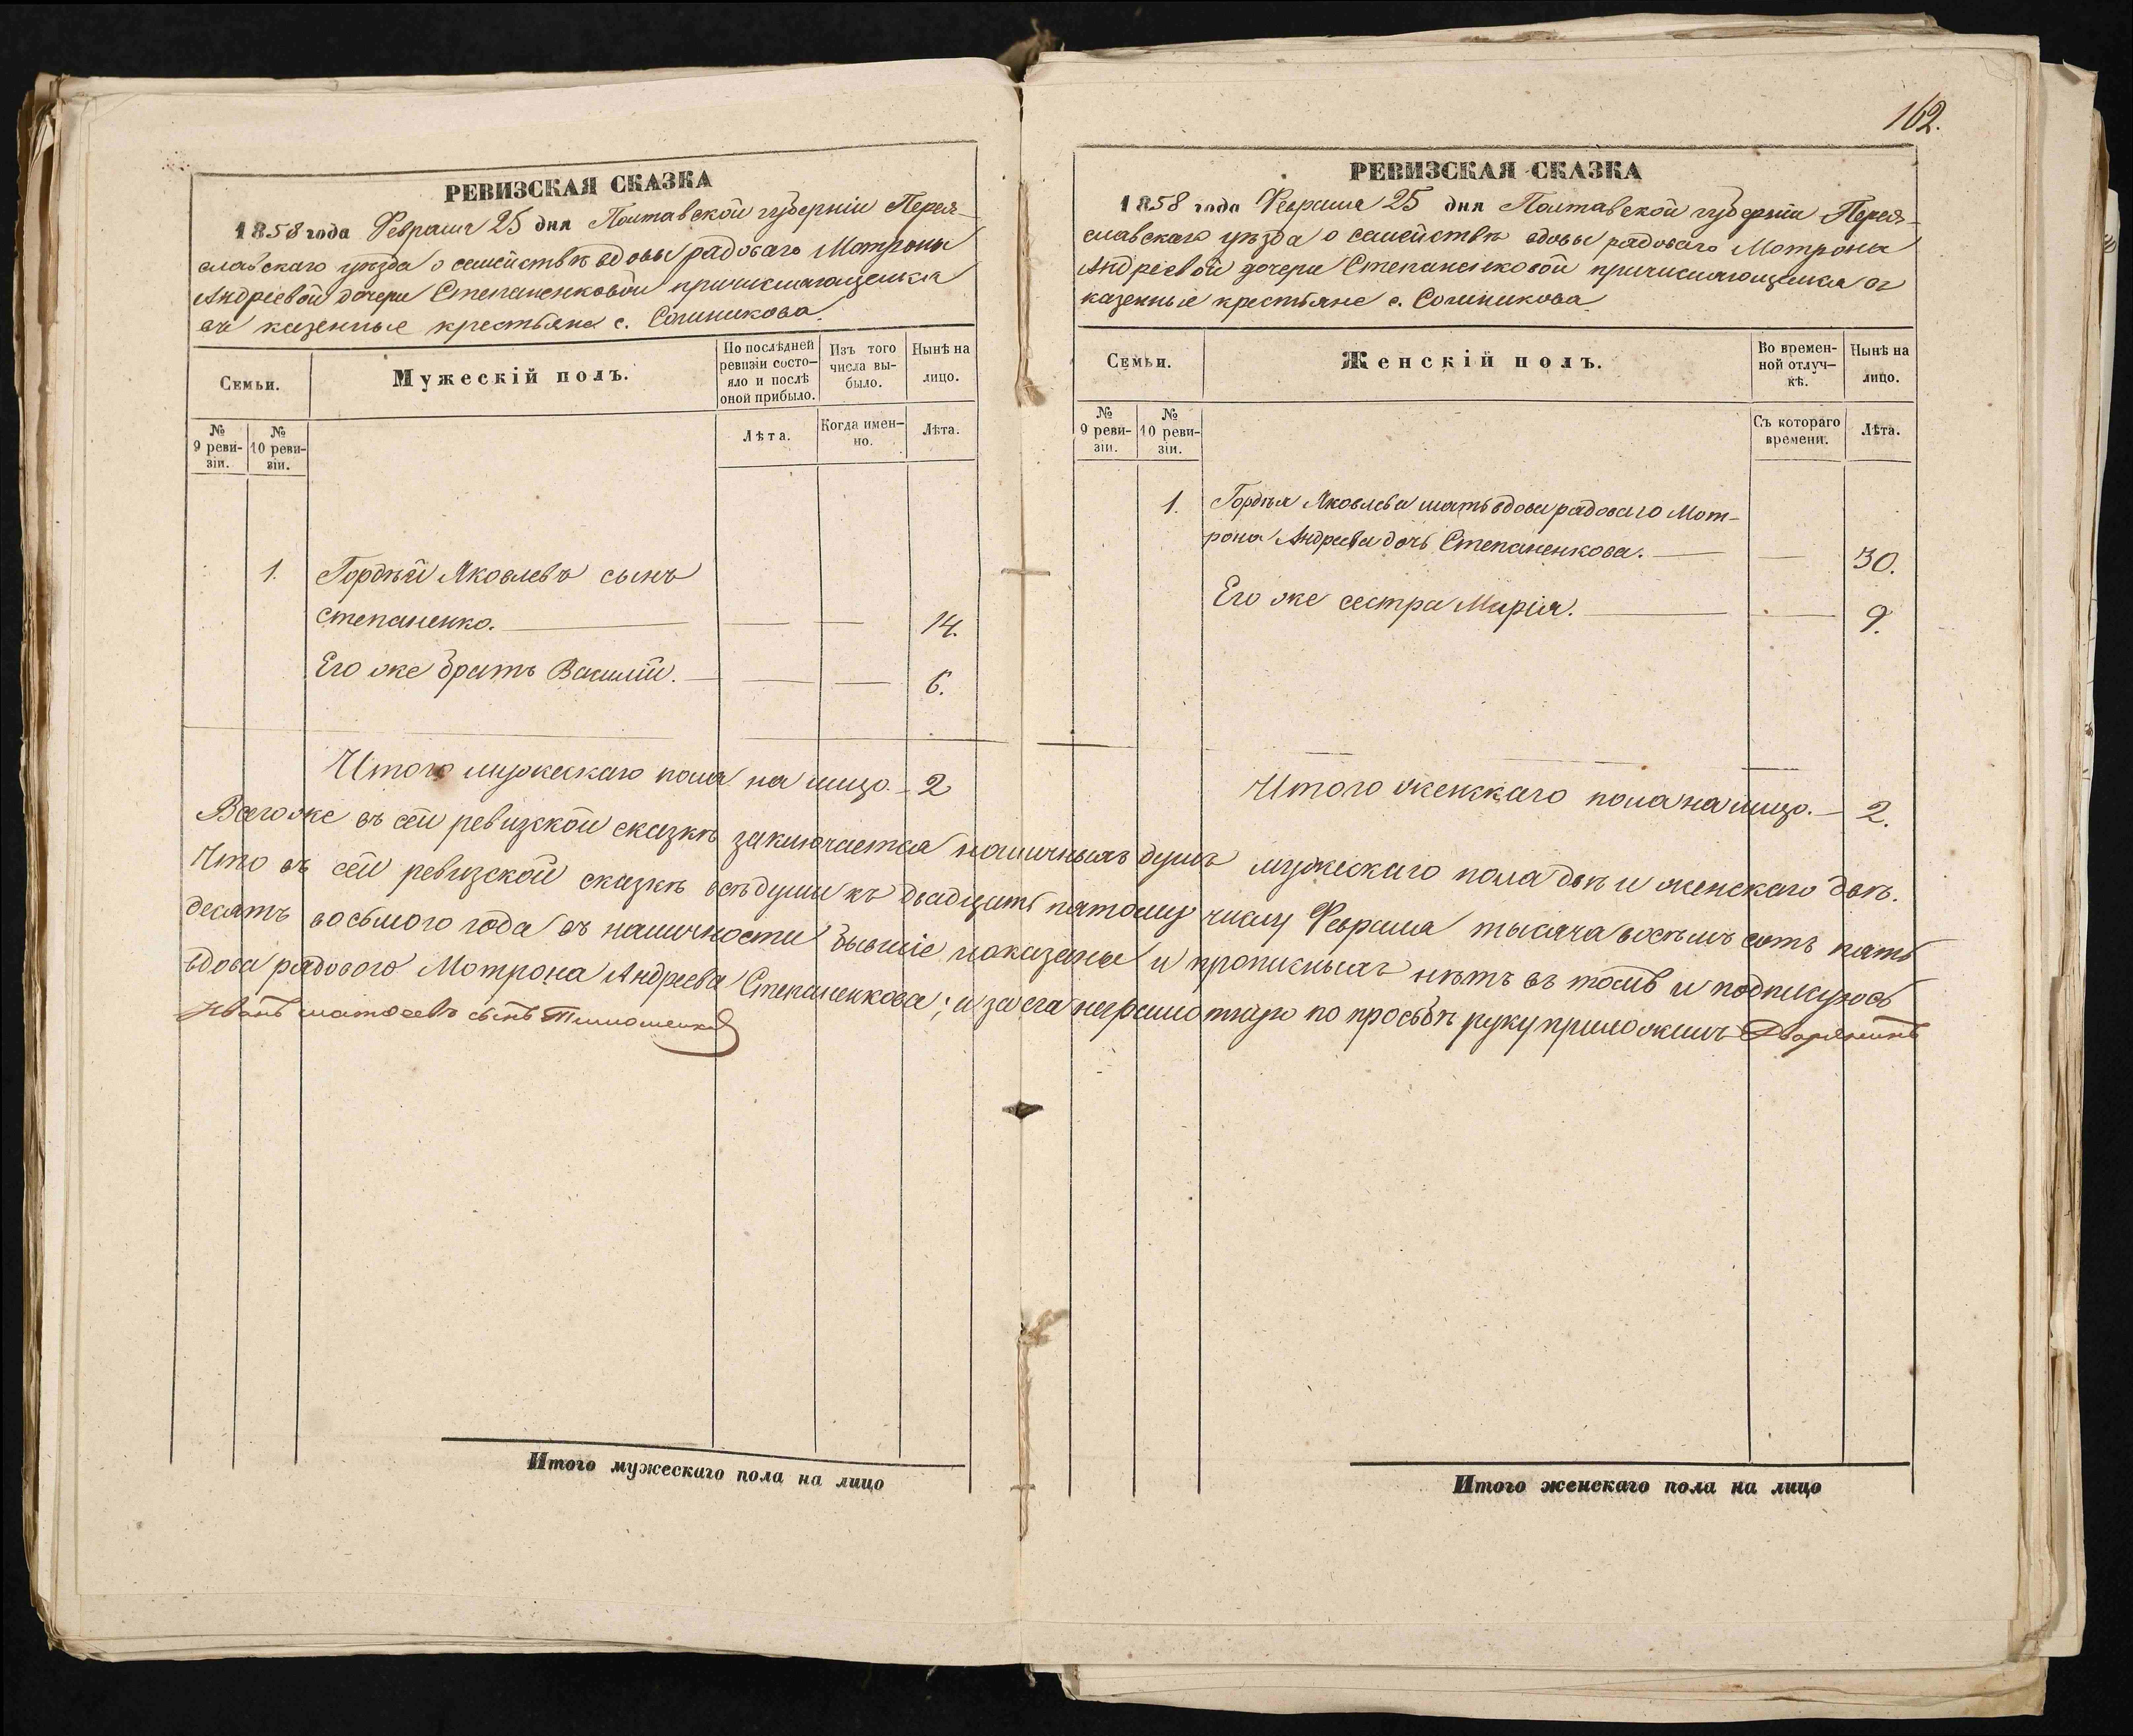 162.
РЕВИЗСКАЯ СКАЗКА
1858 года Февраля 25 дня Полтавской губерніи Перея-
славскаго уѣзда о семействѣ вдовы рядоваго Матроны
Андріевой дочери Степаненковой причисляющемся
въ казенные крестьяне с. Сошникова.
Семьи.
Мужескій полъ.
По послѣдней ревизіи состо-
яло и послѣ оной прибыло.
Изъ того числа вы-
было.
Нынѣ на лицо.
№ 9 реви-
зіи.
№ 10 реви-
зіи.
Лѣта.
Когда имен-
но.
Лѣта.
1. Гордѣй Яковлевъ сынъ
Степаненко. 14.
Его же братъ Василій. 6.
Итого мужескаго пола на лицо. 2
РЕВИЗСКАЯ СКАЗКА
1858 года Февраля 25 дня Полтавской губерніи Перея-
славскаго уѣзда о семействѣ вдовы рядоваго Мотроны
Андріевой дочери Степаненковой причисляющемся въ
казенные крестьяне с. Сошникова
Семьи.
Женскій полъ.
Во времен-
ной отлуч-
кѣ.
Нынѣ на лицо.
№ 9 реви-
зіи.
№ 10 реви-
зіи.
Съ котораго времени.
Лѣта.
1. Гордѣя Яковлева мать вдова рядоваго Мот-
рона Андреева дочь Степаненкова. 30.
Его же сестра Марія. 9.
Итого женскаго пола на лицо. 2.
Всего же въ сей ревизкой сказкѣ заключается наличныхъ душъ мужескаго пола двѣ и женскаго двѣ.
Что въ сей ревизской сказкѣ всѣ души къ двадцать пятому числу Февраля тысяча восѣмъ сотъ пять
десятъ восьмого года въ наличности бывшіе показаны и прописныхъ нѣтъ въ томъ и подписуюсь
вдова рядового Мотрона Андреева Степаненкова; а за ея неграмотную по просьбѣ руку приложилъ Дворянинъ
Иванъ Матвеевъ сынъ Тимошенко
Итого мужескаго пола на лицо
Итого женскаго пола на лицо